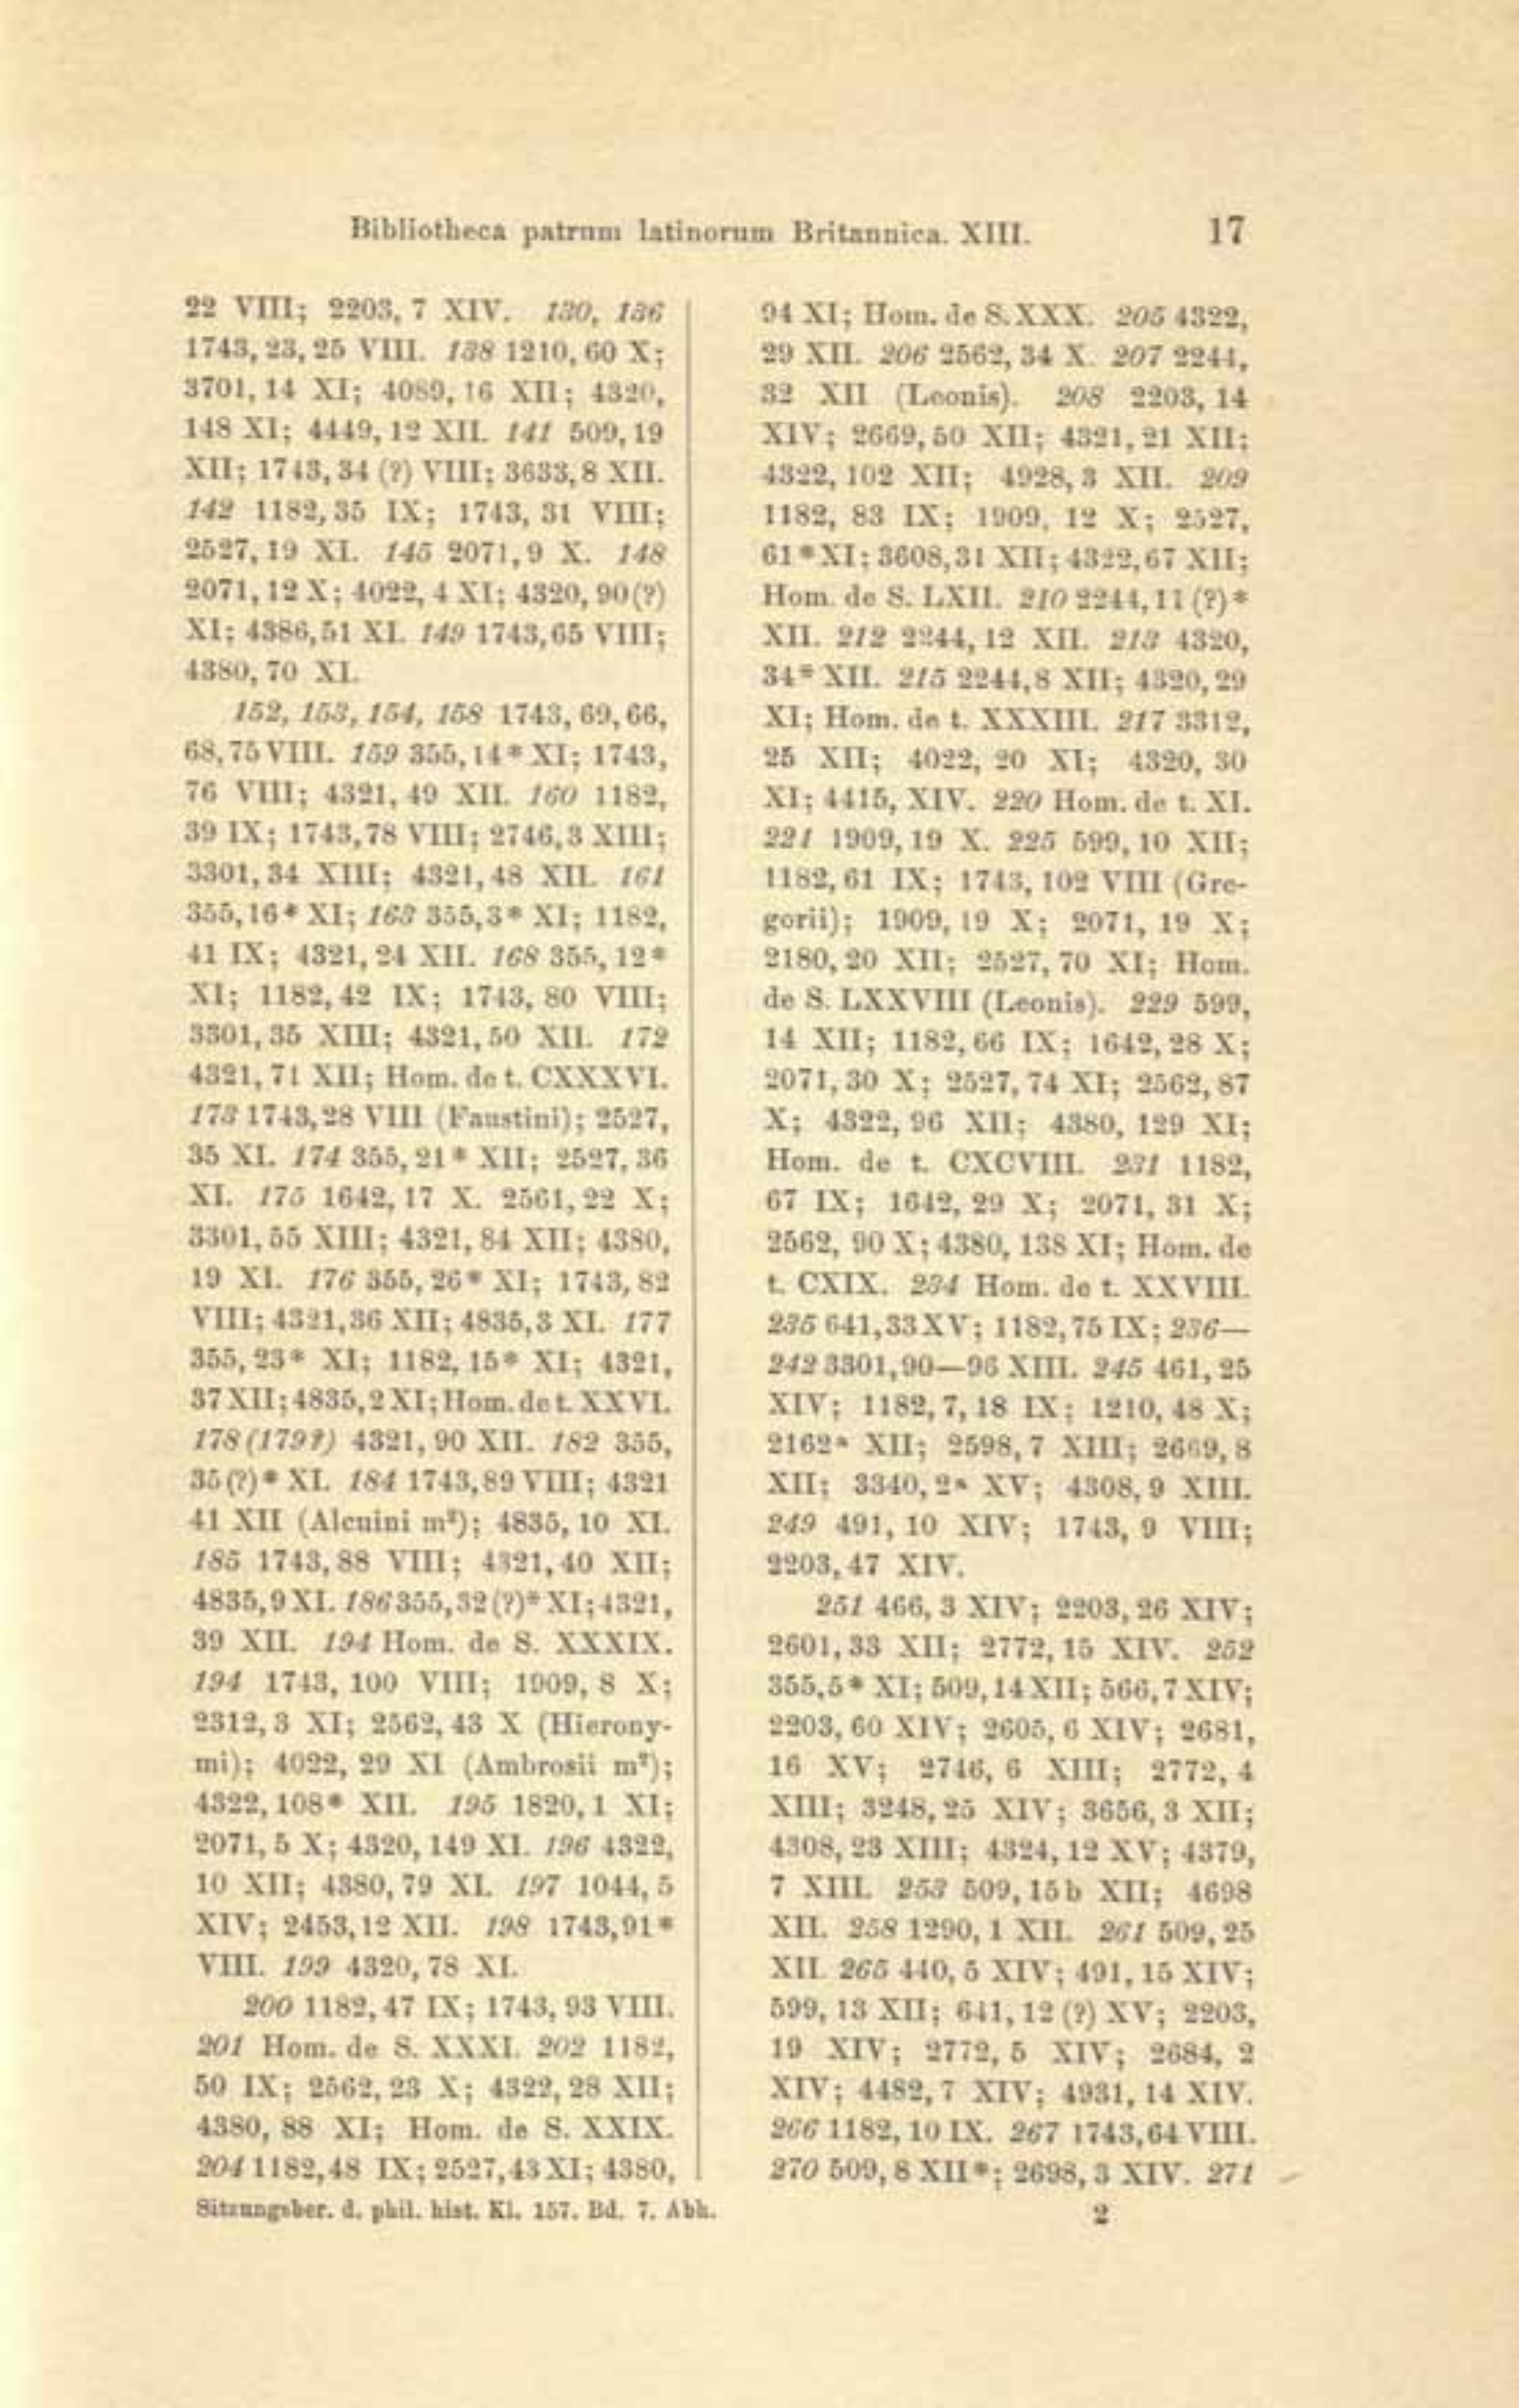 Bibliotheca patrum latinorum Britannica. XIII. 17
22 VIII; 2203, 7 XIV. 130, 136
1743, 23, 25 VIII. 138 1210, 60 X;
3701, 14 XI; 4089, 16 XII; 4320,
148 XI; 4449, 12 XII. 141 509, 19
XII; 1743, 34 (?) VIII; 3633, 8 XII.
142 1182, 35 IX; 1743, 31 VIII;
2527, 19 XI. 145 2071, 9 X. 148
2071, 12 X; 4022, 4 XI; 4320, 90 (?)
XI; 4386, 51 XI. 149 1743, 65 VIII;
4380, 70 XI.
152, 153, 154, 158 1743, 69, 66,
68, 75 VIII. 159 355, 14* XI; 1743,
76 VIII; 4321, 49 XII. 160 1182,
39 IX; 1743, 78 VIII; 2746, 3 XIII;
3301, 34 XIII; 4321, 48 XII. 161
355, 16* XI; 163 355, 3* XI; 1182,
41 IX; 4321, 24 XII. 168 355, 12*
XI; 1182, 42 IX; 1743, 80 VIII;
3301, 35 XIII; 4321, 50 XII. 172
4321, 71 XII; Hom. de t. CXXXVI.
173 1743, 28 VIII (Faustini); 2527,
35 XI. 174 355, 21* XII; 2527, 36
XI. 175 1642, 17 X. 2561, 22 X;
3301, 55 XIII; 4321, 84 XII; 4380,
19 XI. 176 355, 26* XI; 1743, 82
VIII; 4321, 36 XII; 4835, 3 XI. 177
355, 23* XI; 1182, 15* XI; 4321,
37 XII; 4835, 2 XI; Hom. de t. XXVI.
178 (179?) 4321, 90 XII. 182 355,
35 (?)* XI. 184 1743, 89 VIII; 4321
41 XII (Alcuini m²); 4835, 10 XI.
185 1743, 88 VIII; 4321, 40 XII;
4835, 9 XI. 186 355, 32 (?)* XI; 4321,
39 XII. 194 Hom. de S. XXXIX.
194 1743, 100 VIII; 1909, 8 X;
2312, 3 XI; 2562, 43 X (Hierony-
mi); 4022, 29 XI (Ambrosii m²);
4322, 108* XII. 195 1820, 1 XI;
2071, 5 X; 4320, 149 XI. 196 4322,
10 XII; 4380, 79 XI. 197 1044, 5
XIV; 2453, 12 XII. 198 1743, 91*
VIII. 199 4320, 78 XI.
200 1182, 47 IX; 1743, 93 VIII.
201 Hom. de S. XXXI. 202 1182,
50 IX; 2562, 23 X; 4322, 28 XII;
4380, 88 XI; Hom. de S. XXIX.
204 1182, 48 IX; 2527, 43 XI; 4380,
94 XI; Hom. de S. XXX. 205 4322,
29 XII. 206 2562, 34 X. 207 2244,
32 XII (Leonis). 208 2203, 14
XIV; 2669, 50 XII; 4321, 21 XII;
4322, 102 XII; 4928, 3 XII. 209
1182, 83 IX; 1909, 12 X; 2527,
61* XI; 3608, 31 XII; 4322, 67 XII;
Hom. de S. LXII. 210 2244, 11 (?)*
XII. 212 2244, 12 XII. 213 4320,
34* XII. 215 2244, 8 XII; 4320, 29
XI; Hom. de t. XXXIII. 217 3312,
25 XII; 4022, 20 XI; 4320, 30
XI; 4415, XIV. 220 Hom. de t. XI.
221 1909, 19 X. 225 599, 10 XII;
1182, 61 IX; 1743, 102 VIII (Gre-
gorii); 1909, 19 X; 2071, 19 X;
2180, 20 XII; 2527, 70 XI; Hom.
de S. LXXVIII (Leonis). 229 599,
14 XII; 1182, 66 IX; 1642, 28 X;
2071, 30 X; 2527, 74 XI; 2562, 87
X; 4322, 96 XII; 4380, 129 XI;
Hom. de t. CXCVIII. 231 1182,
67 IX; 1642, 29 X; 2071, 31 X;
2562, 90 X; 4380, 138 XI; Hom. de
t. CXIX. 234 Hom. de t. XXVIII.
235 641, 33 XV; 1182, 75 IX; 236—
242 3301, 90—96 XIII. 245 461, 25
XIV; 1182, 7, 18 IX; 1210, 48 X;
2162ᵃ XII; 2598, 7 XIII; 2669, 8
XII; 3340, 2ᵃ XV; 4308, 9 XIII.
249 491, 10 XIV; 1743, 9 VIII;
2203, 47 XIV.
251 466, 3 XIV; 2203, 26 XIV;
2601, 33 XII; 2772, 15 XIV. 252
355, 5* XI; 509, 14 XII; 566, 7 XIV;
2203, 60 XIV; 2605, 6 XIV; 2681,
16 XV; 2746, 6 XIII; 2772, 4
XIII; 3248, 25 XIV; 3656, 3 XII;
4308, 23 XIII; 4324, 12 XV; 4379,
7 XIII. 253 509, 15 b XII; 4698
XII. 258 1290, 1 XII. 261 509, 25
XII. 265 440, 5 XIV; 491, 15 XIV;
599, 13 XII; 641, 12 (?) XV; 2203,
19 XIV; 2772, 5 XIV; 2684, 2
XIV; 4482, 7 XIV; 4931, 14 XIV.
266 1182, 10 IX. 267 1743, 64 VIII.
270 509, 8 XII*; 2698, 3 XIV. 271
Sitzungsber. d. phil. hist. Kl. 157. Bd. 7. Abh. 2